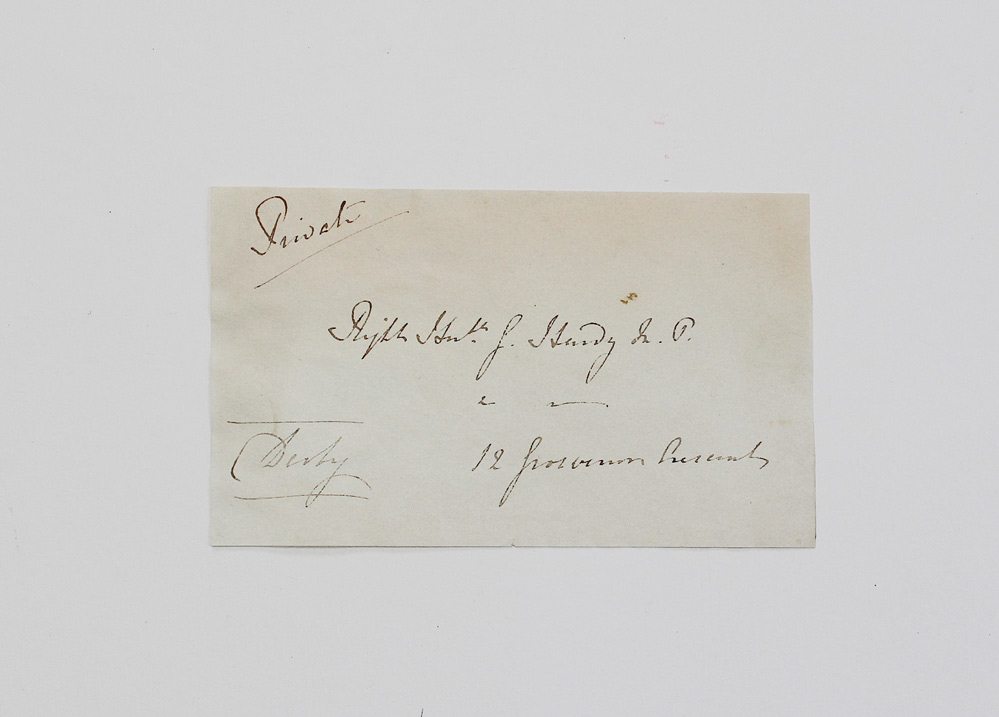 Private
Right Hon^ble G. Hardy M. P.
Derby
12 Grosvenor Crescent